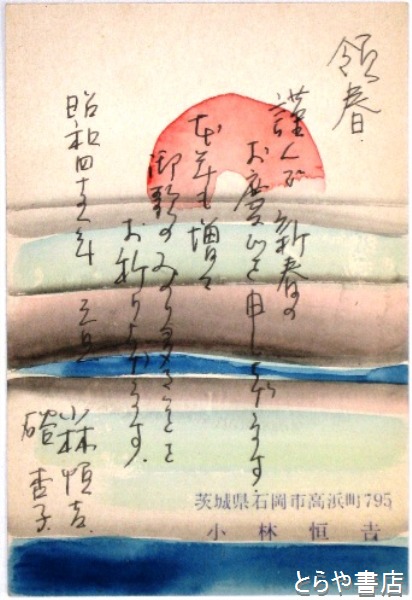 頌春
謹んで新春の
お慶びを申しあげます
本年も増々
御歌のみのり多きことを
お祈り申し上げます
昭和四十五年 元旦
小林恒吉
杏子
茨城県石岡市高浜町795
小林恒吉
とらや書店